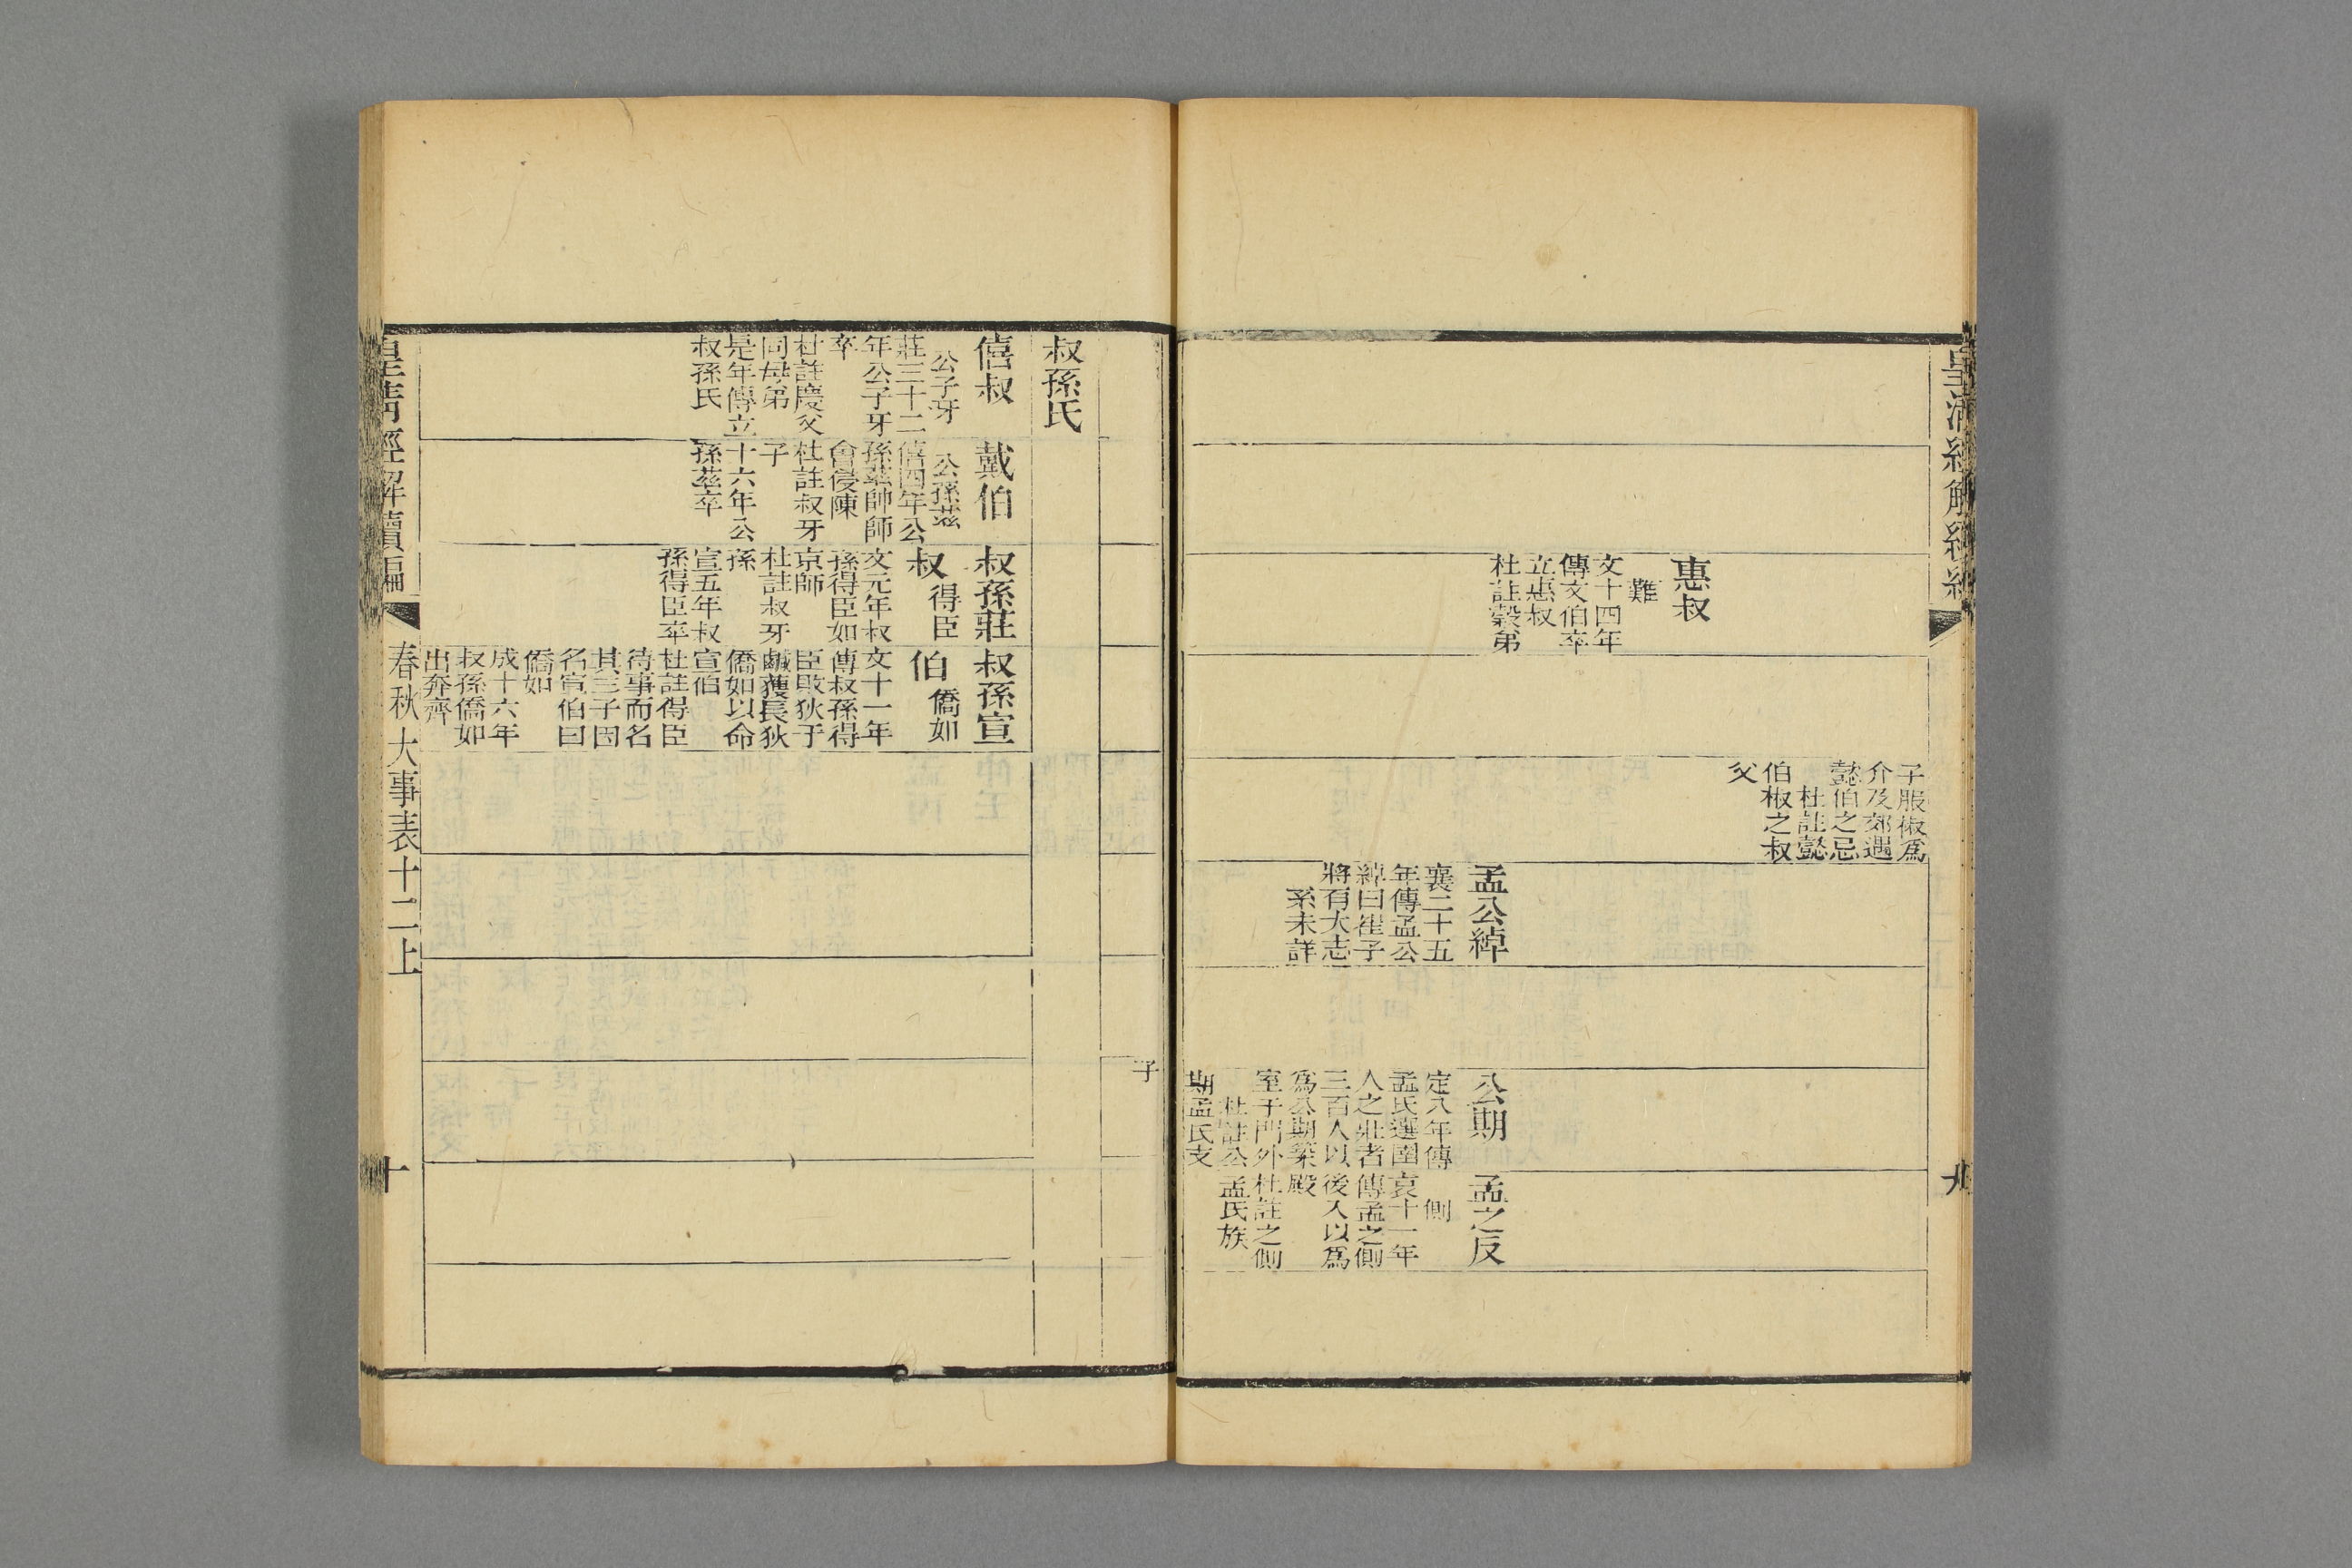 皇清經解續編
九
惠叔
難
文十四年
傳文伯卒
立惠叔
杜註穀弟
子服椒爲
介及郊遇
懿伯之忌
杜註懿
伯椒之叔
父
孟公綽
襄二十五
年傳孟公
綽曰崔子
將有大志
系未詳
公期
定八年傳
孟氏選圉
人之壯者
三百人以
爲公期築
室于門外
杜註公
期孟氏支
孟之反
側
哀十一年
傳孟之側
後入以爲
殿
杜註之側
孟氏族
子
叔孫氏
僖叔
公子牙
莊三十二
年公子牙
卒
杜註慶父
同母弟
是年傳立
叔孫氏
戴伯
公孫茲
僖四年公
孫茲帥師
會侵陳
杜註叔牙
子
十六年公
孫茲卒
叔孫莊
叔 得臣
文元年叔
孫得臣如
京師
杜註叔牙
孫
宣五年叔
孫得臣卒
叔孫宣
伯 僑如
文十一年
傳叔孫得
臣敗狄于
鹹獲長狄
僑如以命
宣伯
杜註得臣
待事而名
其三子因
名宣伯曰
僑如
成十六年
叔孫僑如
出奔齊
皇清經解續編
春秋大事表十二上
十